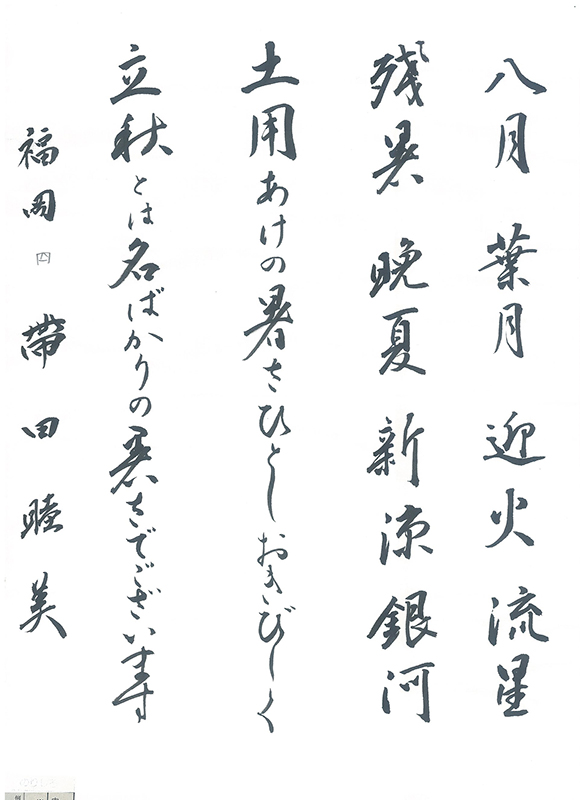 八月 葉月 迎火 流星
残暑 晩夏 新涼 銀河
土用あけの暑さひとしおきびしく
立秋とは名ばかりの暑さでございます
福岡 四 帯田睦美